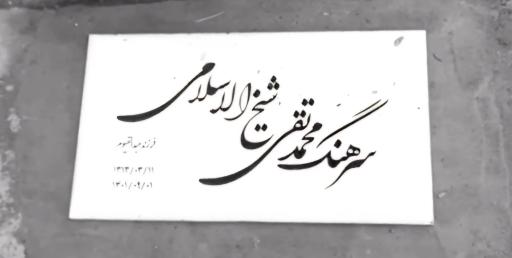 سرهنگ محمدتقی شیخ الاسلامی
فرزند عبدالقیوم
۱۳۱۳/۰۳/۱۱
۱۴۰۱/۰۹/۰۱